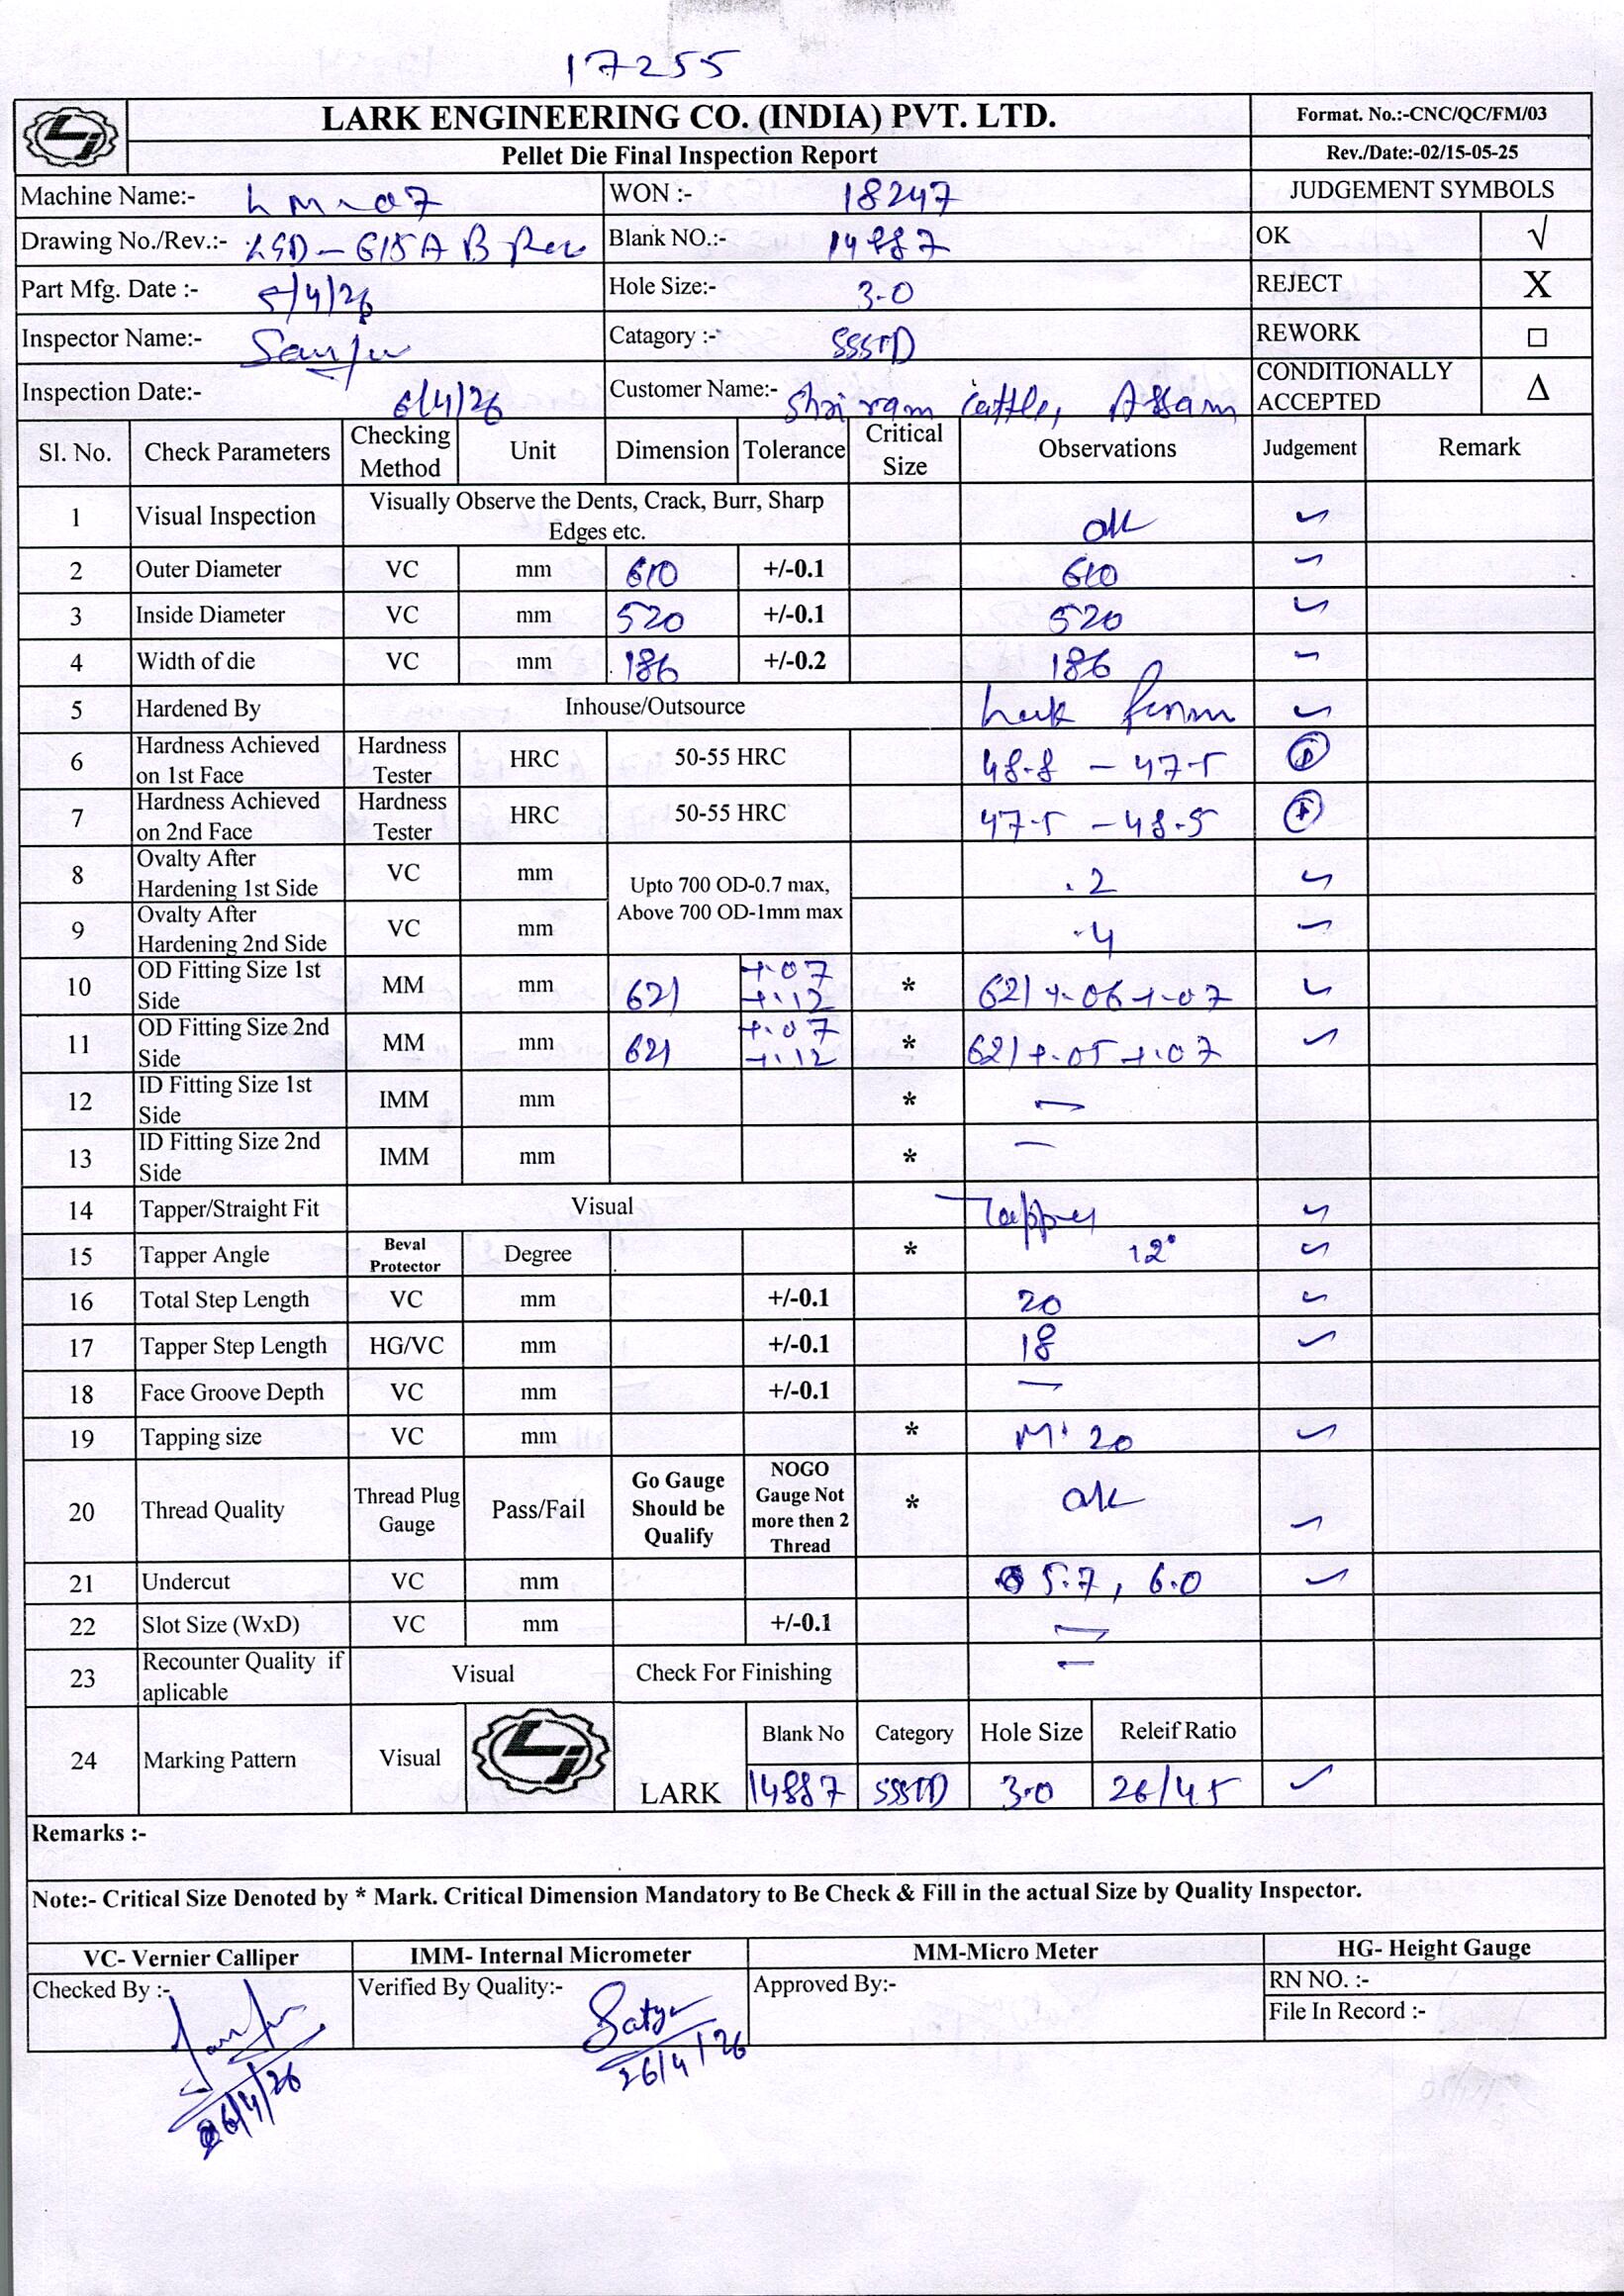 17255
LARK ENGINEERING CO. (INDIA) PVT. LTD.
Format. No.:-CNC/QC/FM/03
Pellet Die Final Inspection Report
Rev./Date:-02/15-05-25
Machine Name:- LM-07 WON :- 18247 JUDGEMENT SYMBOLS
Drawing No./Rev.:- LSD-615A B Rev Blank NO.:- 14887 OK √
Part Mfg. Date :- 5/4/26 Hole Size:- 3.0 REJECT X
Inspector Name:- Sanju Catagory :- SSSTD REWORK □
Inspection Date:- 6/4/26 Customer Name:- Shri ram Cattle, Assam CONDITIONALLY ACCEPTED Δ
Sl. No. Check Parameters Checking Method Unit Dimension Tolerance Critical Size Observations Judgement Remark
1 Visual Inspection Visually Observe the Dents, Crack, Burr, Sharp Edges etc. ok ✓
2 Outer Diameter VC mm 610 +/-0.1 610 ✓
3 Inside Diameter VC mm 520 +/-0.1 520 ✓
4 Width of die VC mm 186 +/-0.2 186 ✓
5 Hardened By Inhouse/Outsource ✓
6 Hardness Achieved on 1st Face Hardness Tester HRC 50-55 HRC 48.8 - 47.5
7 Hardness Achieved on 2nd Face Hardness Tester HRC 50-55 HRC 47.5 - 48.5
8 Ovalty After Hardening 1st Side VC mm Upto 700 OD-0.7 max, Above 700 OD-1mm max .2 ✓
9 Ovalty After Hardening 2nd Side VC mm .4 ✓
10 OD Fitting Size 1st Side MM mm 621 +.07 +.12 * 621 +.06 +.07 ✓
11 OD Fitting Size 2nd Side MM mm 621 +.07 +.12 * 621 +.05 +.07 ✓
12 ID Fitting Size 1st Side IMM mm * —
13 ID Fitting Size 2nd Side IMM mm * —
14 Tapper/Straight Fit Visual Tapper ✓
15 Tapper Angle Beval Protector Degree * 12° ✓
16 Total Step Length VC mm +/-0.1 20 ✓
17 Tapper Step Length HG/VC mm +/-0.1 18 ✓
18 Face Groove Depth VC mm +/-0.1 —
19 Tapping size VC mm * M 20 ✓
20 Thread Quality Thread Plug Gauge Pass/Fail Go Gauge Should be Qualify NOGO Gauge Not more then 2 Thread * ok ✓
21 Undercut VC mm 5.7, 6.0 ✓
22 Slot Size (WxD) VC mm +/-0.1 —
23 Recounter Quality if aplicable Visual Check For Finishing —
24 Marking Pattern Visual LARK Blank No Category Hole Size Releif Ratio
14887 SSSTD 3.0 26/45 ✓
Remarks :-
Note:- Critical Size Denoted by * Mark. Critical Dimension Mandatory to Be Check & Fill in the actual Size by Quality Inspector.
VC- Vernier Calliper IMM- Internal Micrometer MM-Micro Meter HG- Height Gauge
Checked By :- Sanju Verified By Quality:- Satya Approved By:- RN NO. :-
File In Record :-
26/4/26 26/4/26